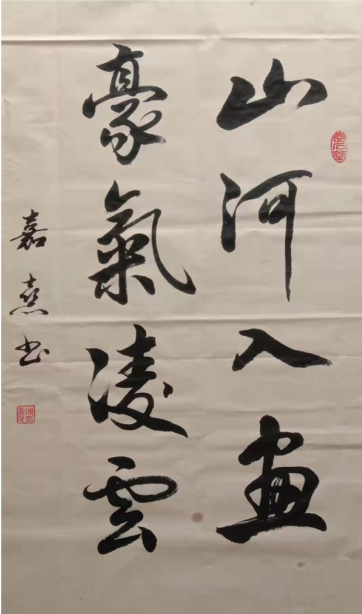 山河入畫
豪氣凌雲
嘉熹书